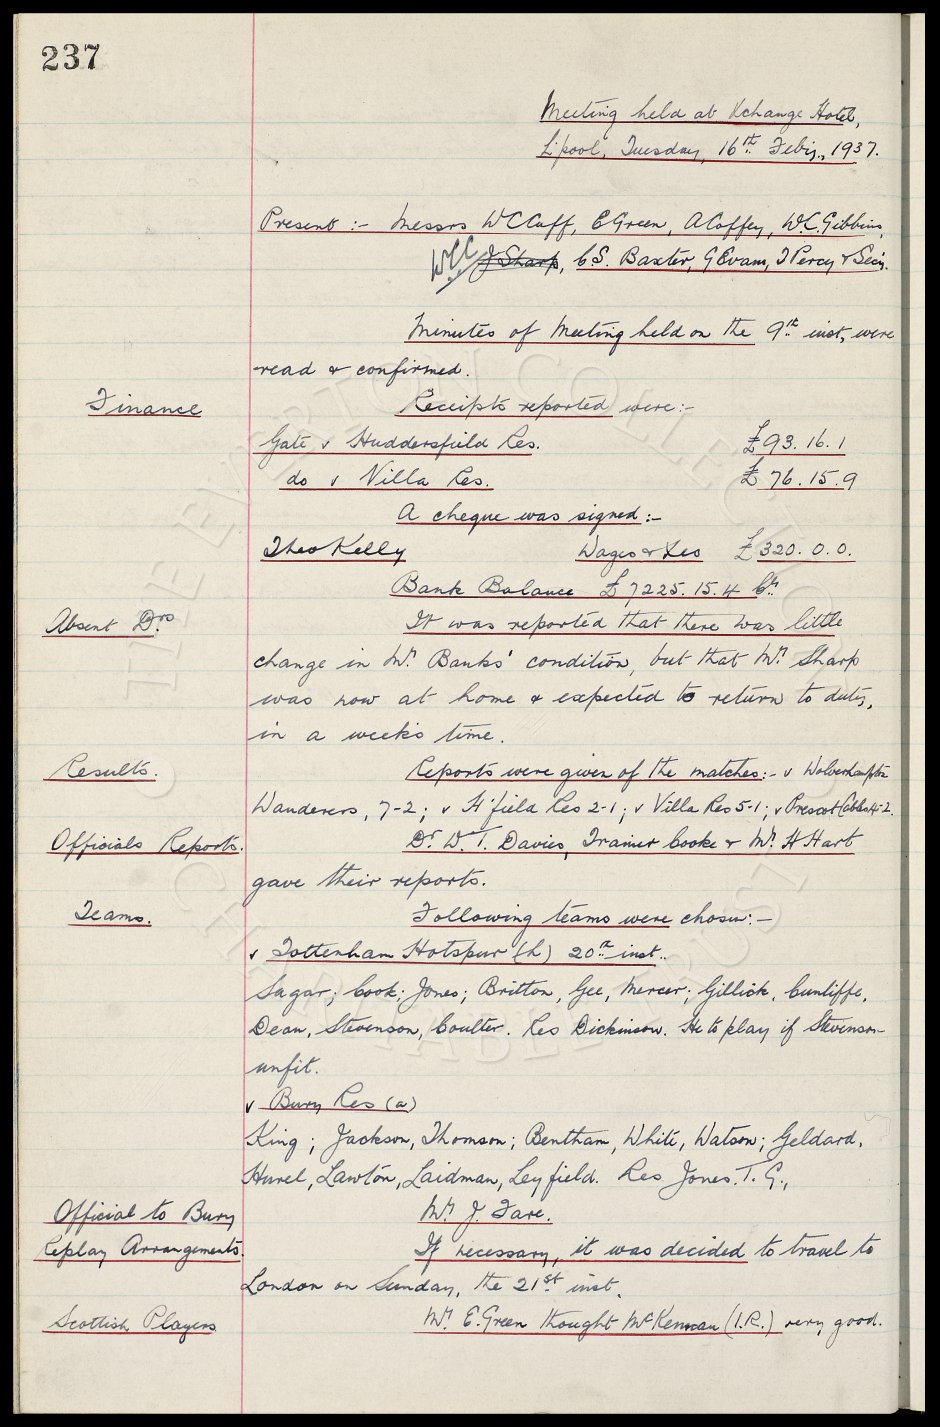 237
Meeting held at Xchange Hotel,
L'pool, Tuesday, 16th Feby., 1937.
Present :- Messrs W C Cuff, E Green, A Coffey, W.C. Gibbins,
WCC J Sharp, C S. Baxter, G Evans, T Percy & Secy.
Minutes of Meeting held on the 9th inst, were
read & confirmed.
Finance Receipts reported were:-
Gate v Huddersfield Res. £93. 16. 1
do v Villa Res. £76. 15. 9
A cheque was signed:-
Theo Kelly Wages & £320. 0. 0.
Bank Balance £7225. 15. 4 Cr
Absent Drs It was reported that there was little
change in Mr. Banks' condition, but that Mr Sharp
was now at home & expected to return to duty,
in a week's time.
Results. Reports were given of the matches:- v Wolverhampton
Wanderers, 7-2; v H'field Res 2-1; v Villa Res 5-1; v Prescot Cables 4-2.
Officials Reports. Dr. W. T. Davies, Trainer Cooke & Mr. H Hart
gave their reports.
Teams. Following teams were chosen:-
v Tottenham Hotspur (h) 20th inst..
Sagar; Cook; Jones; Britton, Gee, Mercer; Gillick, Cunliffe,
Dean, Stevenson, Coulter. Res Dickinson. He to play if Stevenson
unfit.
v Bury Res (a)
King; Jackson, Thomson; Bentham, White, Watson; Geldard,
Hurel, Lawton, Laidman, Leyfield. Res Jones. T. G.,
Official to Bury Mr J. Fare.
Replay Arrangements. If necessary, it was decided to travel to
London on Sunday, the 21st inst.
Scottish Players Mr E. Green thought McKennan (I.R.) very good.
THE EVERTON COLLECTION
CHARITABLE TRUST